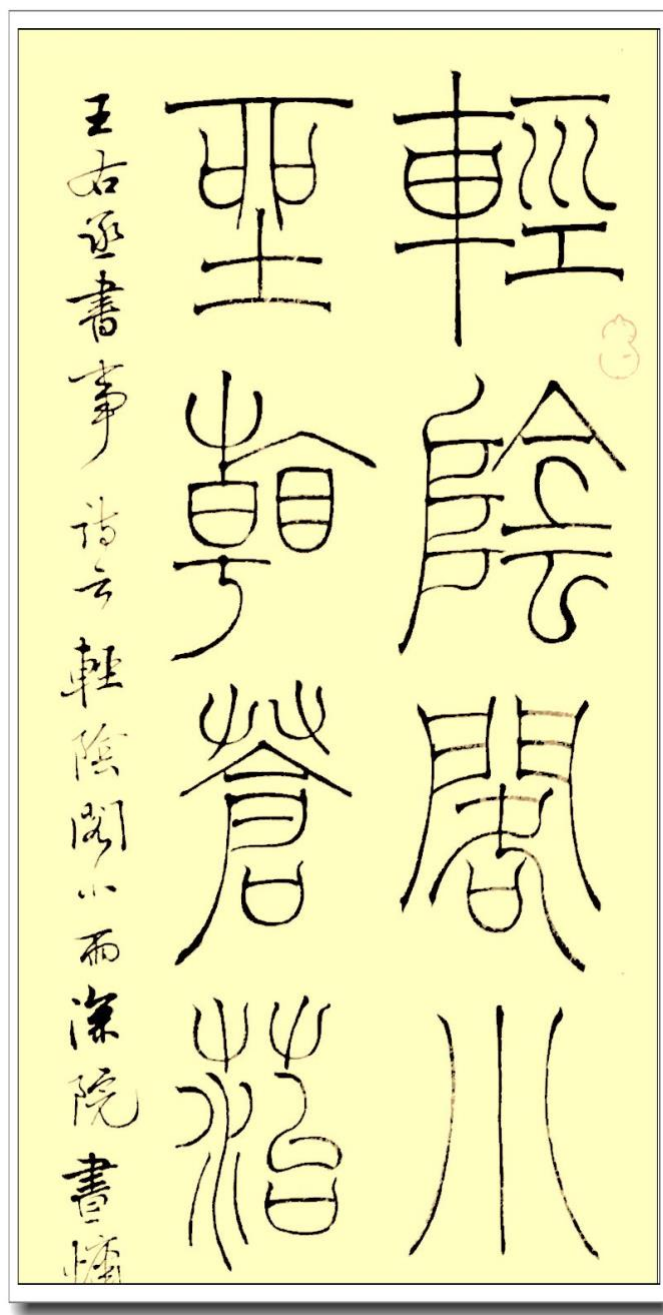 輕陰閣小
坐看蒼菭
王右丞書事 詩云 輕陰閣小雨深院晝慵